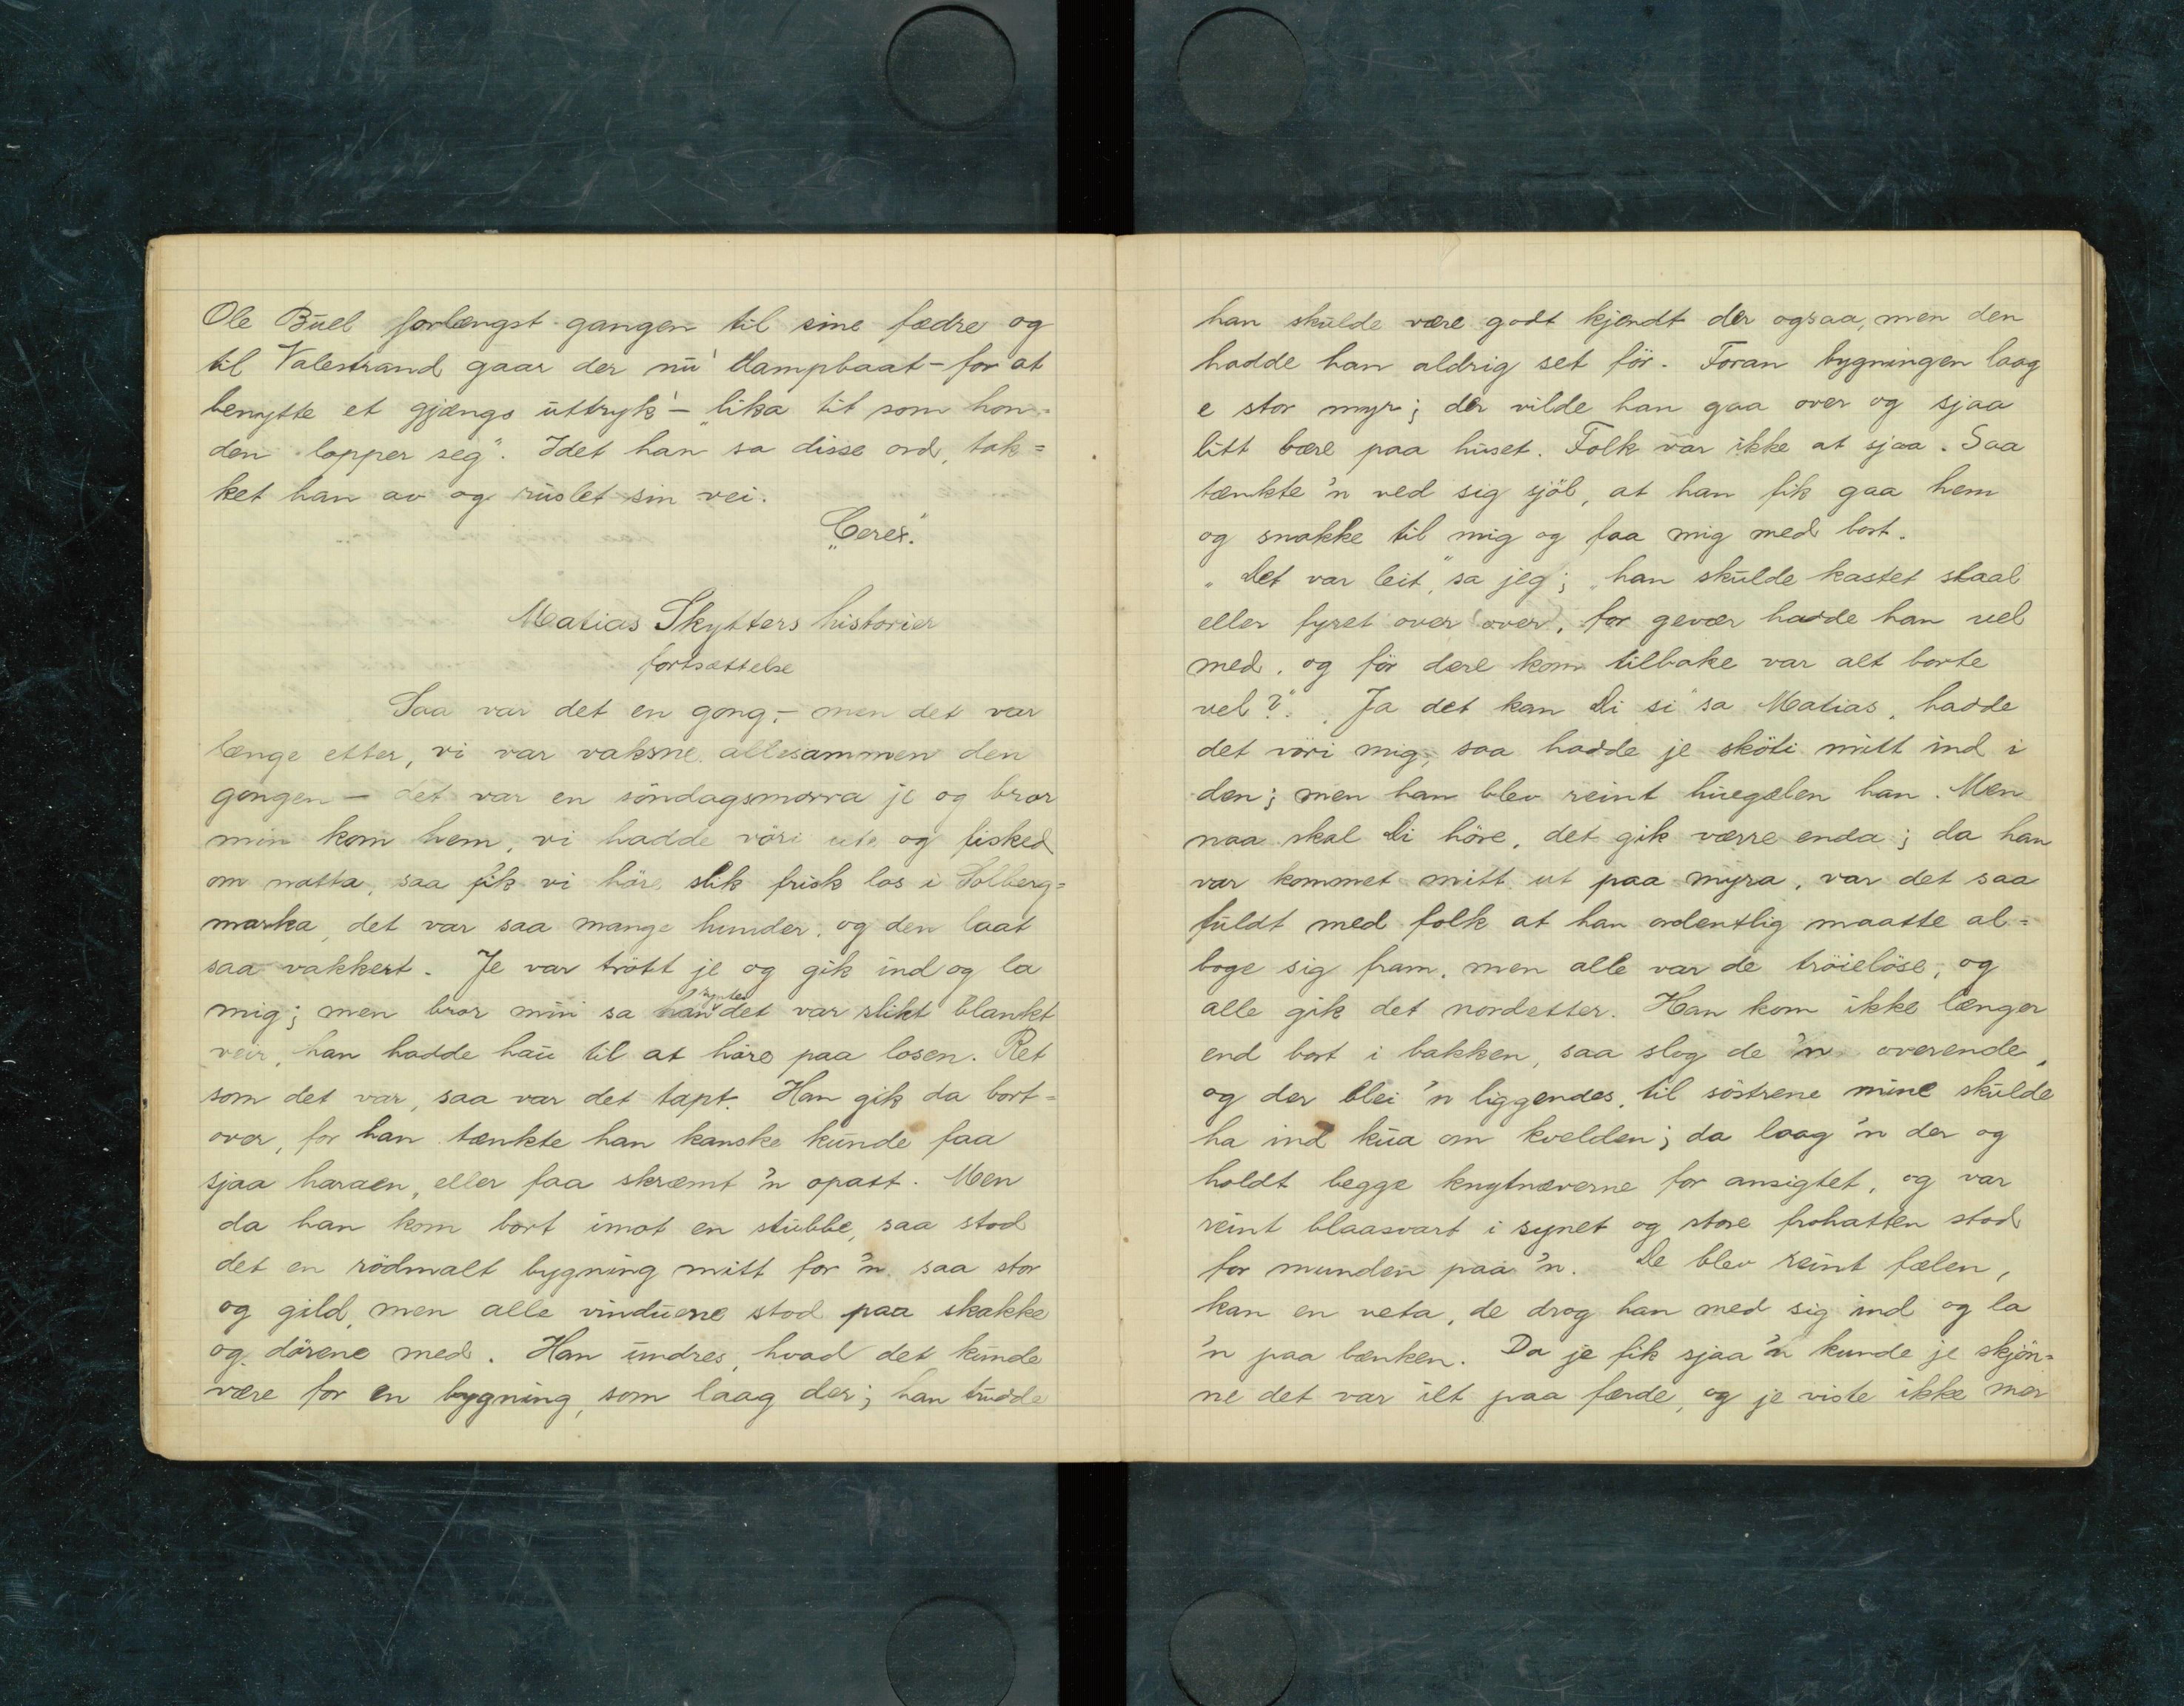 Ole Buel forlængst gangen til sine fædre og
til Valestrand gaar der nu dampbaat – for at
benytte et gjængs uttryk – „lika tit som hon-
den lopper seg". Idet han sa disse ord, tok=
ket han av og ruslet sin vei.
„Ceres".
Matias Skytters historier
fortsættelse
Saa var det en gong, – men det var
længe etter, vi var vaksne allesammen den
gongen – det var en söndagsmorra je og bror
min kom hem, vi hadde vöri ute og fisked
om natta, saa fik vi höre slik frisk los i Solberg=
marka, det var saa mange hunder, og den laat
saa vakkert. Je var trött je og gik ind og la
mig; men bror min sa han syntes det var slikt blankt
veir, han hadde hau til at höre paa losen. Ret
som det var, saa var det tapt. Han gik da bort=
over, for han tænkte han kanske kunde faa
sjaa haraen, eller faa skræmt 'n opatt. Men
da han kom bort imot en stubbe, saa stod
det en rödmalt bygning mitt for 'n saa stor
og gild, men alle vinduene stod paa skakke
og dörene med. Han undres, hvad det kunde
være for en bygning, som laag der; han trudde
han skulde være godt kjendt der ogsaa, men den
hadde han aldrig set för. Foran bygningen laag
e stor myr; der vilde han gaa over og sjaa
litt bære paa huset. Folk var ikke at sjaa. Saa
tænkte 'n ved sig sjöl, at han fik gaa hem
og snakke til mig og faa mig med bort.
„Det var leit," sa jeg; „han skulde kastet staal
eller fyret over (over), for gevær hadde han vel
med, og för dere kom tilbake var alt borte
vel?". „Ja det kan Di si" sa Matias, hadde
det vöri mig, saa hadde je sköti mitt ind i
den; men han blev reint huegælen han. Men
naa skal Di höre, det gik værre enda; da han
var kommet mitt ut paa myra, var det saa
fuldt med folk at han ordentlig maatte al=
boge sig fram, men alle var de tröielöse, og
alle gik det nordetter. Han kom ikke længer
end bort i bakken, saa slog de 'n overende,
og der blei 'n liggendes, til söstrene mine skulde
ha ind kua om kvelden; da laag 'n der og
holdt begge knytnæverne for ansigtet, og var
reint blaasvart i synet og store frohatten stod
for munden paa 'n. De blev reint fælen,
kan en veta, de drog han med sig ind og la
'n paa bænken. Da je fik sjaa 'n kunde je skjön=
ne det var ilt paa færde, og je viste ikke mer